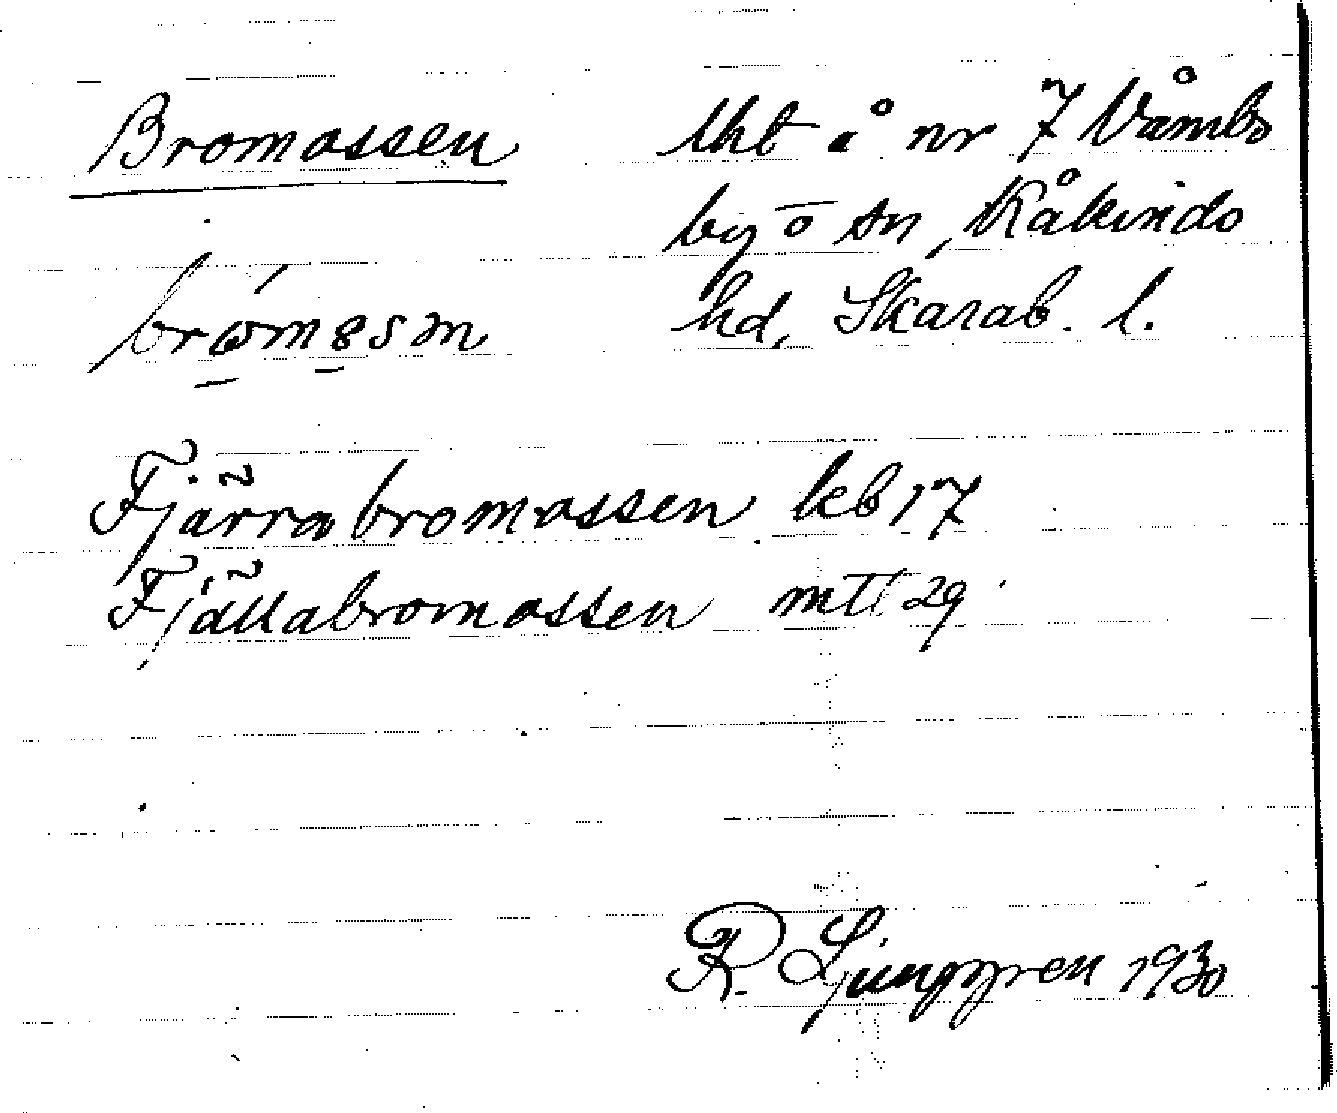 Bromossen
lht å nr 7 Våmbs
by o sn, Kåkinds
hd, Skarab. l.
Fjärrabromossen leb 17
Fjällabromossen mtl 29
R. Ljunggren 1930